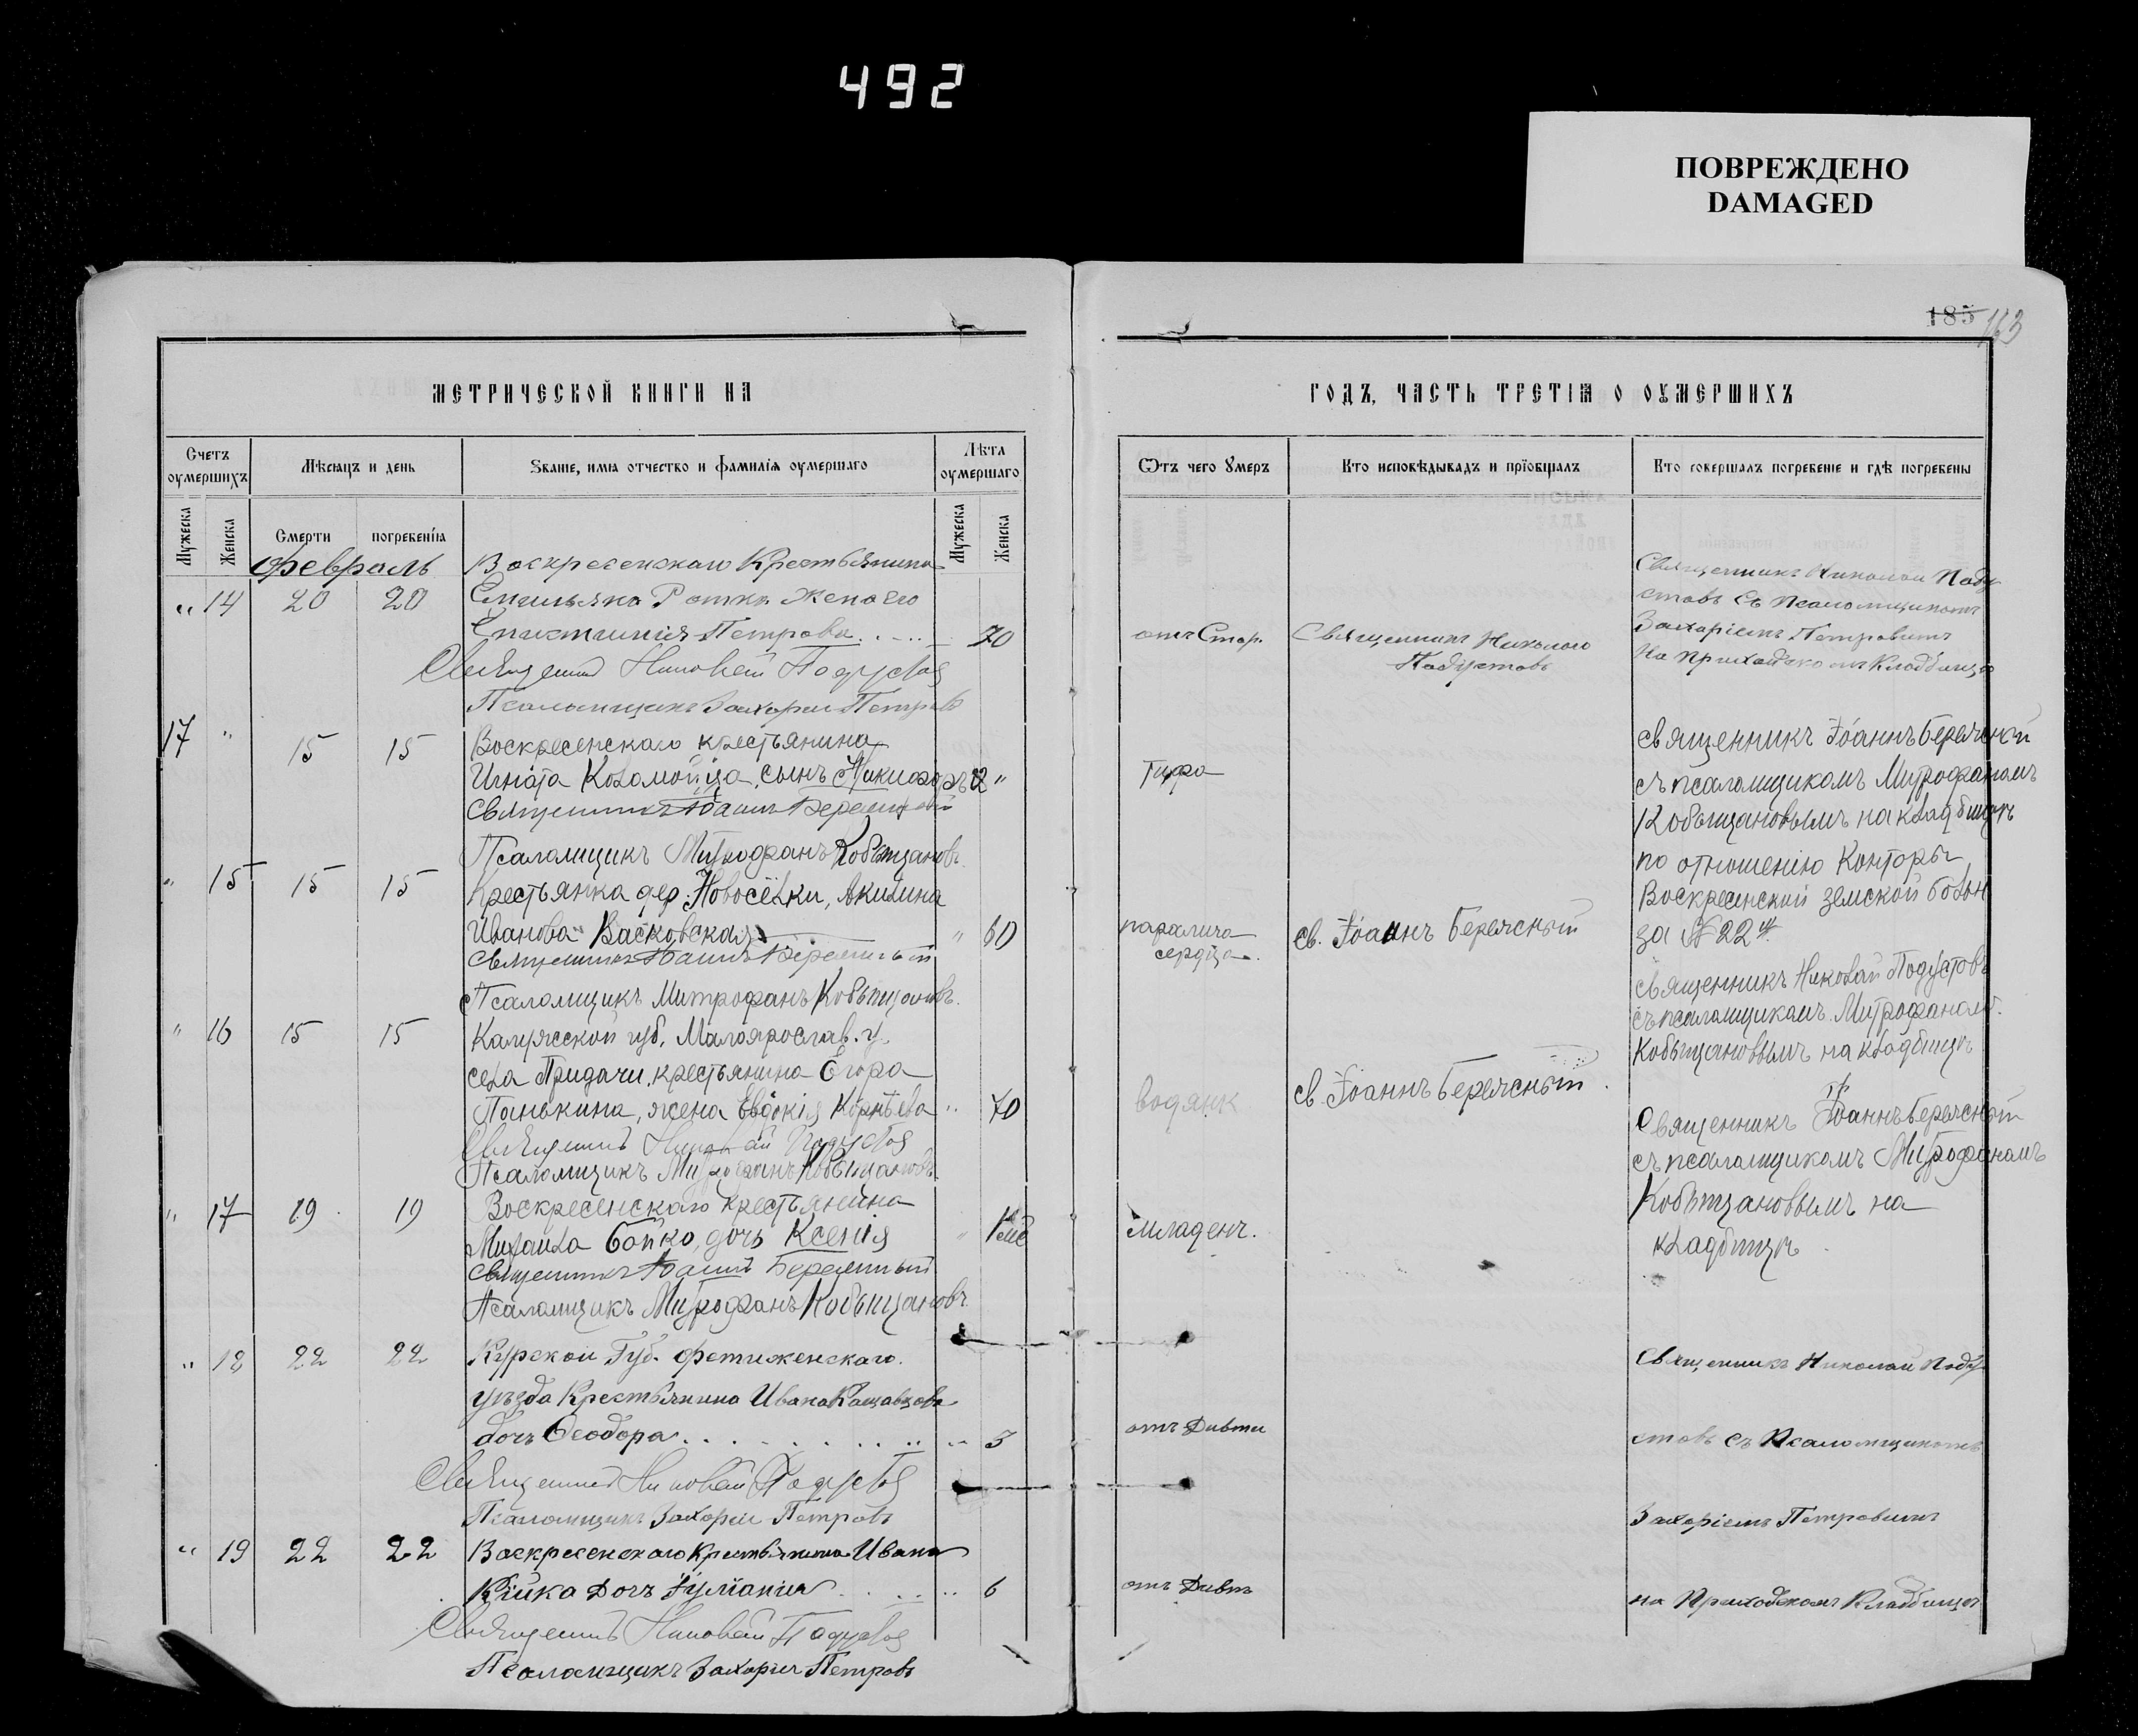 492
ПОВРЕЖДЕНО
DAMAGED
185 163
МЕТРИЧЕСКОЙ КНИГИ НА
ГОДЪ, ЧАСТЬ ТРЕТІЯ О ОУМЕРШИХЪ
Счетъ оумершихъ
Мѣсяцъ и день
Званіе, имя отчество и фамилія оумершаго
Лѣта оумершаго
Ѿтъ чего Умеръ
Кто исповѣдывадъ и пріобщалъ
Кто совершалъ погребеніе и гдѣ погребены
Мужеска
Женска
Смерти
погребенія
Мужеска
Женска
Февраль
Воскресенскаго Крестьянина
" 14 20 20 Емильяна Ротки жена его
Епистимія Петрова 70
Священникъ Николай Подустовъ
Псаломщикъ Захарій Петровъ
отъ Стар.
Священникъ Николай
Подустовъ
Священникъ Николай Поду
стовъ съ Псаломщикомъ
Захаріемъ Петровымъ
На Приходскомъ Кладбищѣ
17 " 15 15 Воскресенскаго крестьянина
Игната Коломойца, сынъ Никифоръ 2 "
Священникъ Іоаннъ Бережный
Псаломщикъ Митрофанъ Кобыщановъ
Тифа
Священникъ Іоаннъ Бережный
съ псаломщикомъ Митрофаномъ
Кобыщановымъ на кладбищѣ
по отношенію Конторы
Воскресенской земской больн
за № 22
" 15 15 15 Крестьянка дер. Новосёлки, Акилина
Иванова Васковская " 60
Священникъ Іоаннъ Бережный
Псаломщикъ Митрофанъ Кобыщановъ.
паралича
сердца.
св. Іоаннъ Бережный
Священникъ Николай Подустовъ
съ псаломщикомъ Митрофаномъ
Кобыщановымъ на кладбищѣ
" 16 15 15 Калужской губ. Малоярослав. у.
села Придачи, крестьянина Егора
Панькина, жена Евдокія Корнѣева " 70
Священникъ Николай Подустовъ
Псаломщикъ Митрофанъ Кобыщановъ
водянк
св. Іоаннъ Бережный.
Священникъ Іоаннъ Бережный
съ псаломщикомъ Митрофаномъ
Кобыщановымъ на
кладбищѣ
" 17 19 19 Воскресенскаго крестьянина
Михаила Бойко, дочь Ксенія "
Священникъ Іоаннъ Бережный
Псаломщикъ Митрофанъ Кобыщановъ
младенч.
" 18 22 22 Курской Губ.
уѣзда Крестьянина Ивана
дочь Феодора " 3
Священникъ Николай Подустовъ
Псаломщикъ Захарій Петровъ
отъ
Священникъ Николай Поду
стовъ съ Псаломщикомъ
Захаріемъ Петровымъ
на Приходскомъ Кладбищѣ
" 19 22 22 Воскресенскаго Крестьянина Ивана
Кійка Дочь Іуліанія " 6
Священникъ Николай Подустовъ
Псаломщикъ Захарій Петровъ
отъ